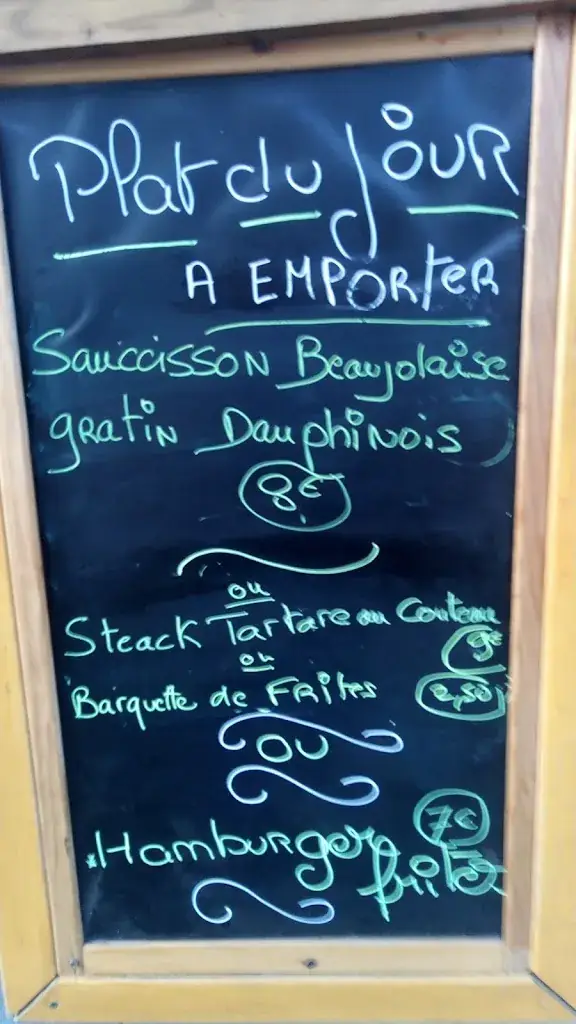 Plat du jour
A EMPORTER
Sauccisson Beaujolaise
gratin Dauphinois
8€
ou
Steack Tartare au Couteau
9€
ou
Barquette de Frites
2,50
OU
7€
*Hamburger frites